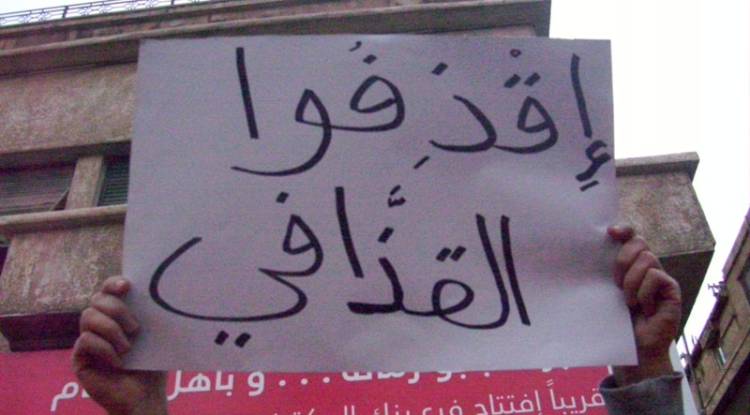 إقْذِفُوا
القذَّافي
... و بأهل
قريباً افتتاح فرع بنك